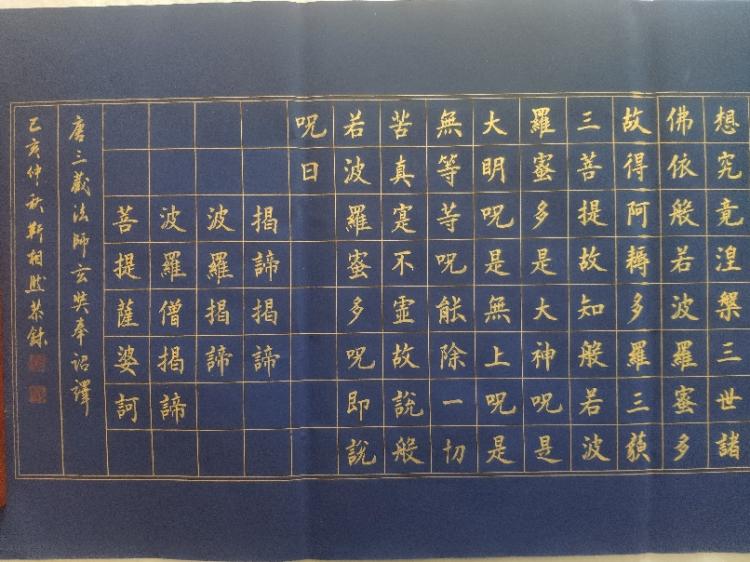 想究竟涅槃三世諸
佛依般若波羅蜜多
故得阿耨多羅三藐
三菩提故知般若波
羅蜜多是大神呪是
大明呪是無上呪是
無等等呪能除一切
苦真寔不虛故說般
若波羅蜜多呪即說
呪曰
揭諦揭諦
波羅揭諦
波羅僧揭諦
菩提薩婆訶
唐三藏法師玄奘奉詔譯
己亥仲秋靳相恭録